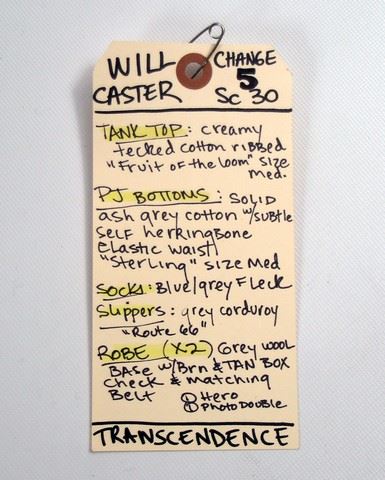 WILL CHANGE
CASTER 5
SC 30
TANK TOP: creamy
tecked cotton ribbed
"Fruit of the loom" size
med.
PJ BOTTOMS: SOLID
ash grey cotton w/subtle
self herkingbone
Elastic waist
"Sterling" size Med
SOCKS: Blue/grey Fleck
Slippers: grey corduroy
"Route 66"
ROBE (X2) Grey wool
BASE w/Brn & TAN BOX
Check & matching
Belt ① Hero
① PHOTO DOUBLE
TRANSCENDENCE